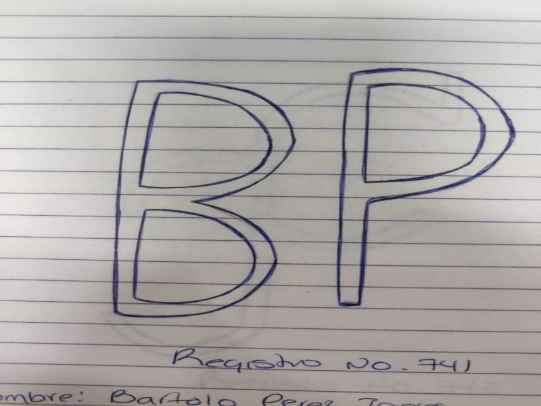 BP
Registro No. 741
ombre: Bartolo Perez